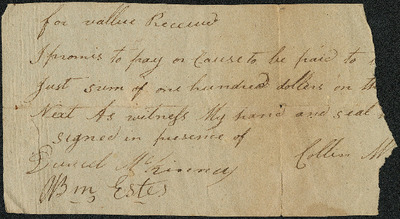 for vallue Received
I promis to pay or Cause to be paid to
Just sum of one hundred dollers on th
Next As witness My hand and seal
signed in presence of
Daniel McKinney Collin M
Wm Estes